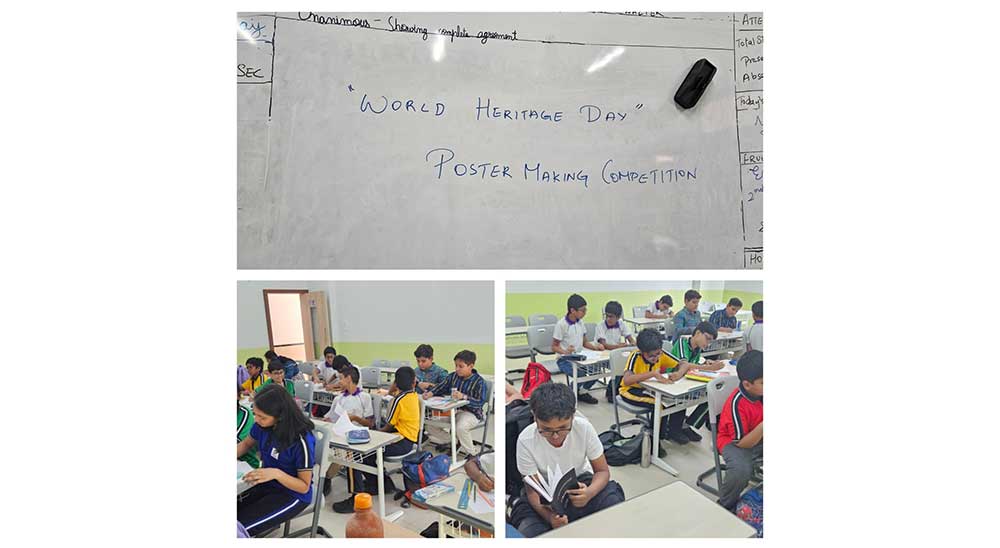 Unanimous - Showing complete agreement
SEC
"WORLD HERITAGE DAY"
POSTER MAKING COMPETITION
ATTE
Total St
Prese
Abse
Today's
2nd
HO